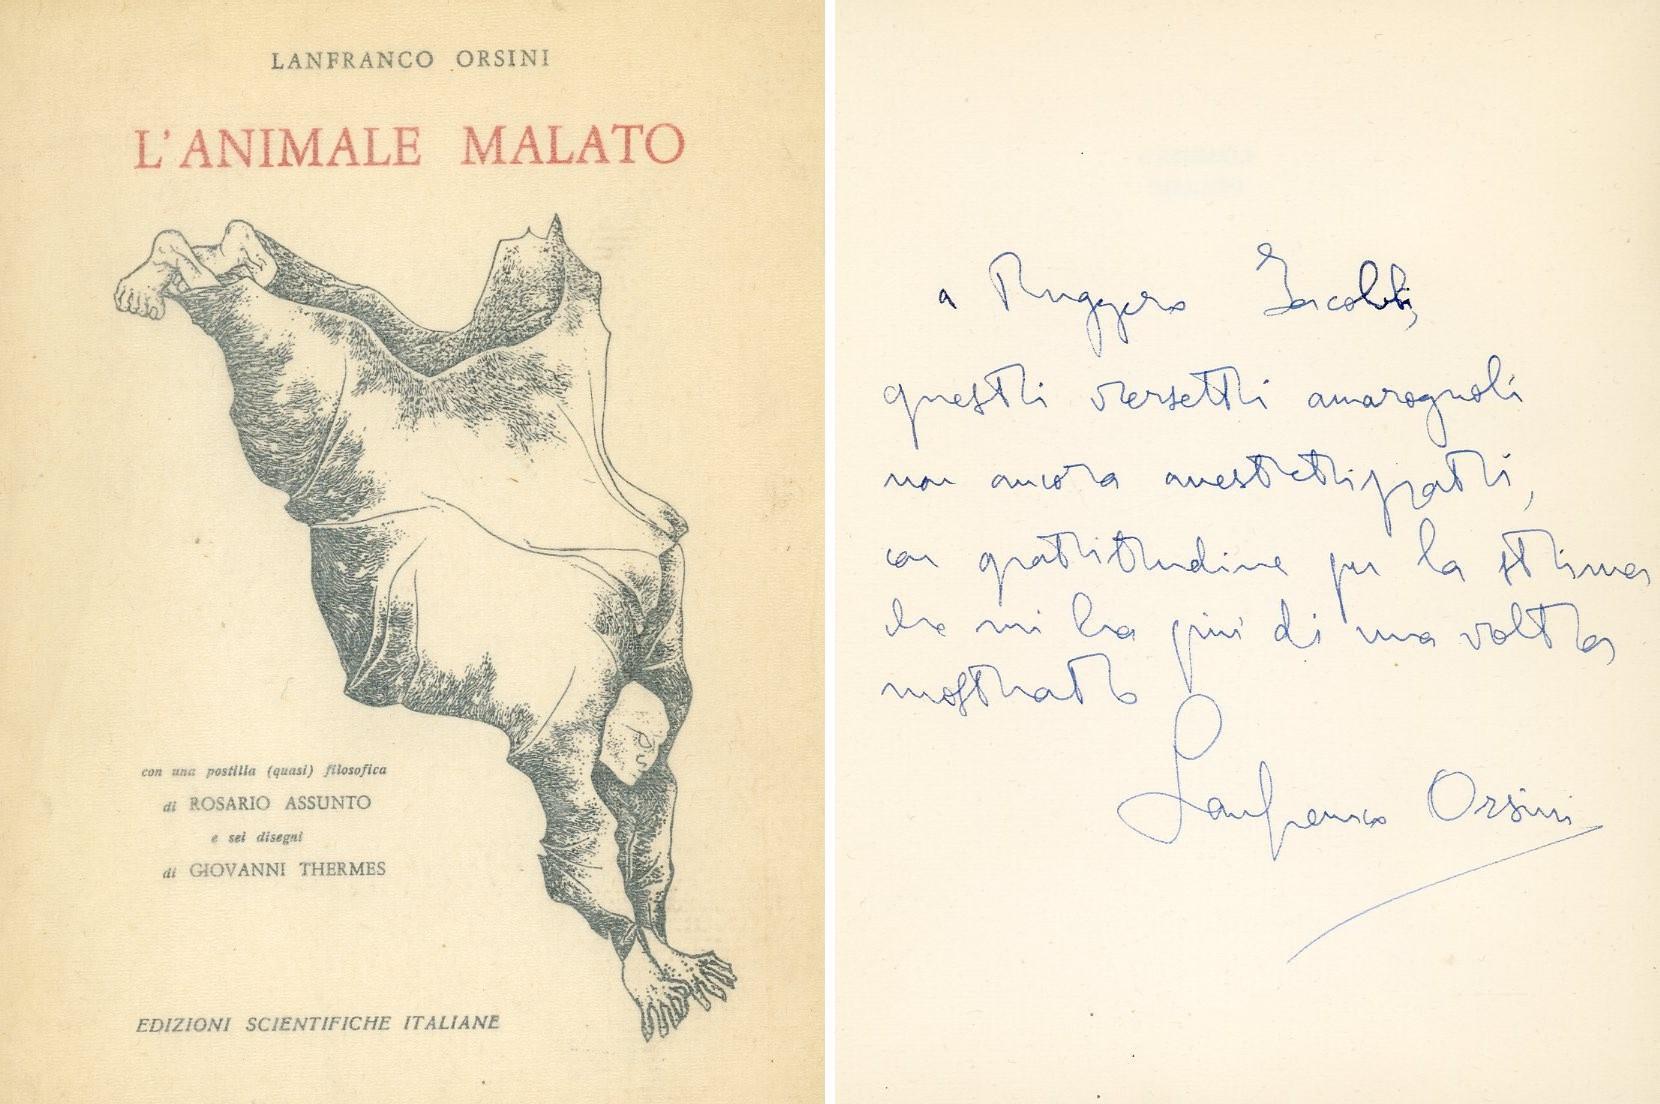 LANFRANCO ORSINI
L'ANIMALE MALATO
con una postilla (quasi) filosofica
di ROSARIO ASSUNTO
e sei disegni
di GIOVANNI THERMES
EDIZIONI SCIENTIFICHE ITALIANE
a Ruggero Jacobbi,
questi versetti amarognoli
non ancora anestetizzati,
con gratitudine per la stima
che mi ha più di una volta
mostrato
Lanfranco Orsini